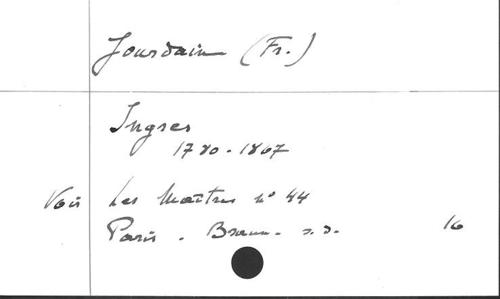 Jourdain (Fr.)
Ingres
1780-1867
Voir Les Maîtres n° 44
Paris. Braun. s.d. 16